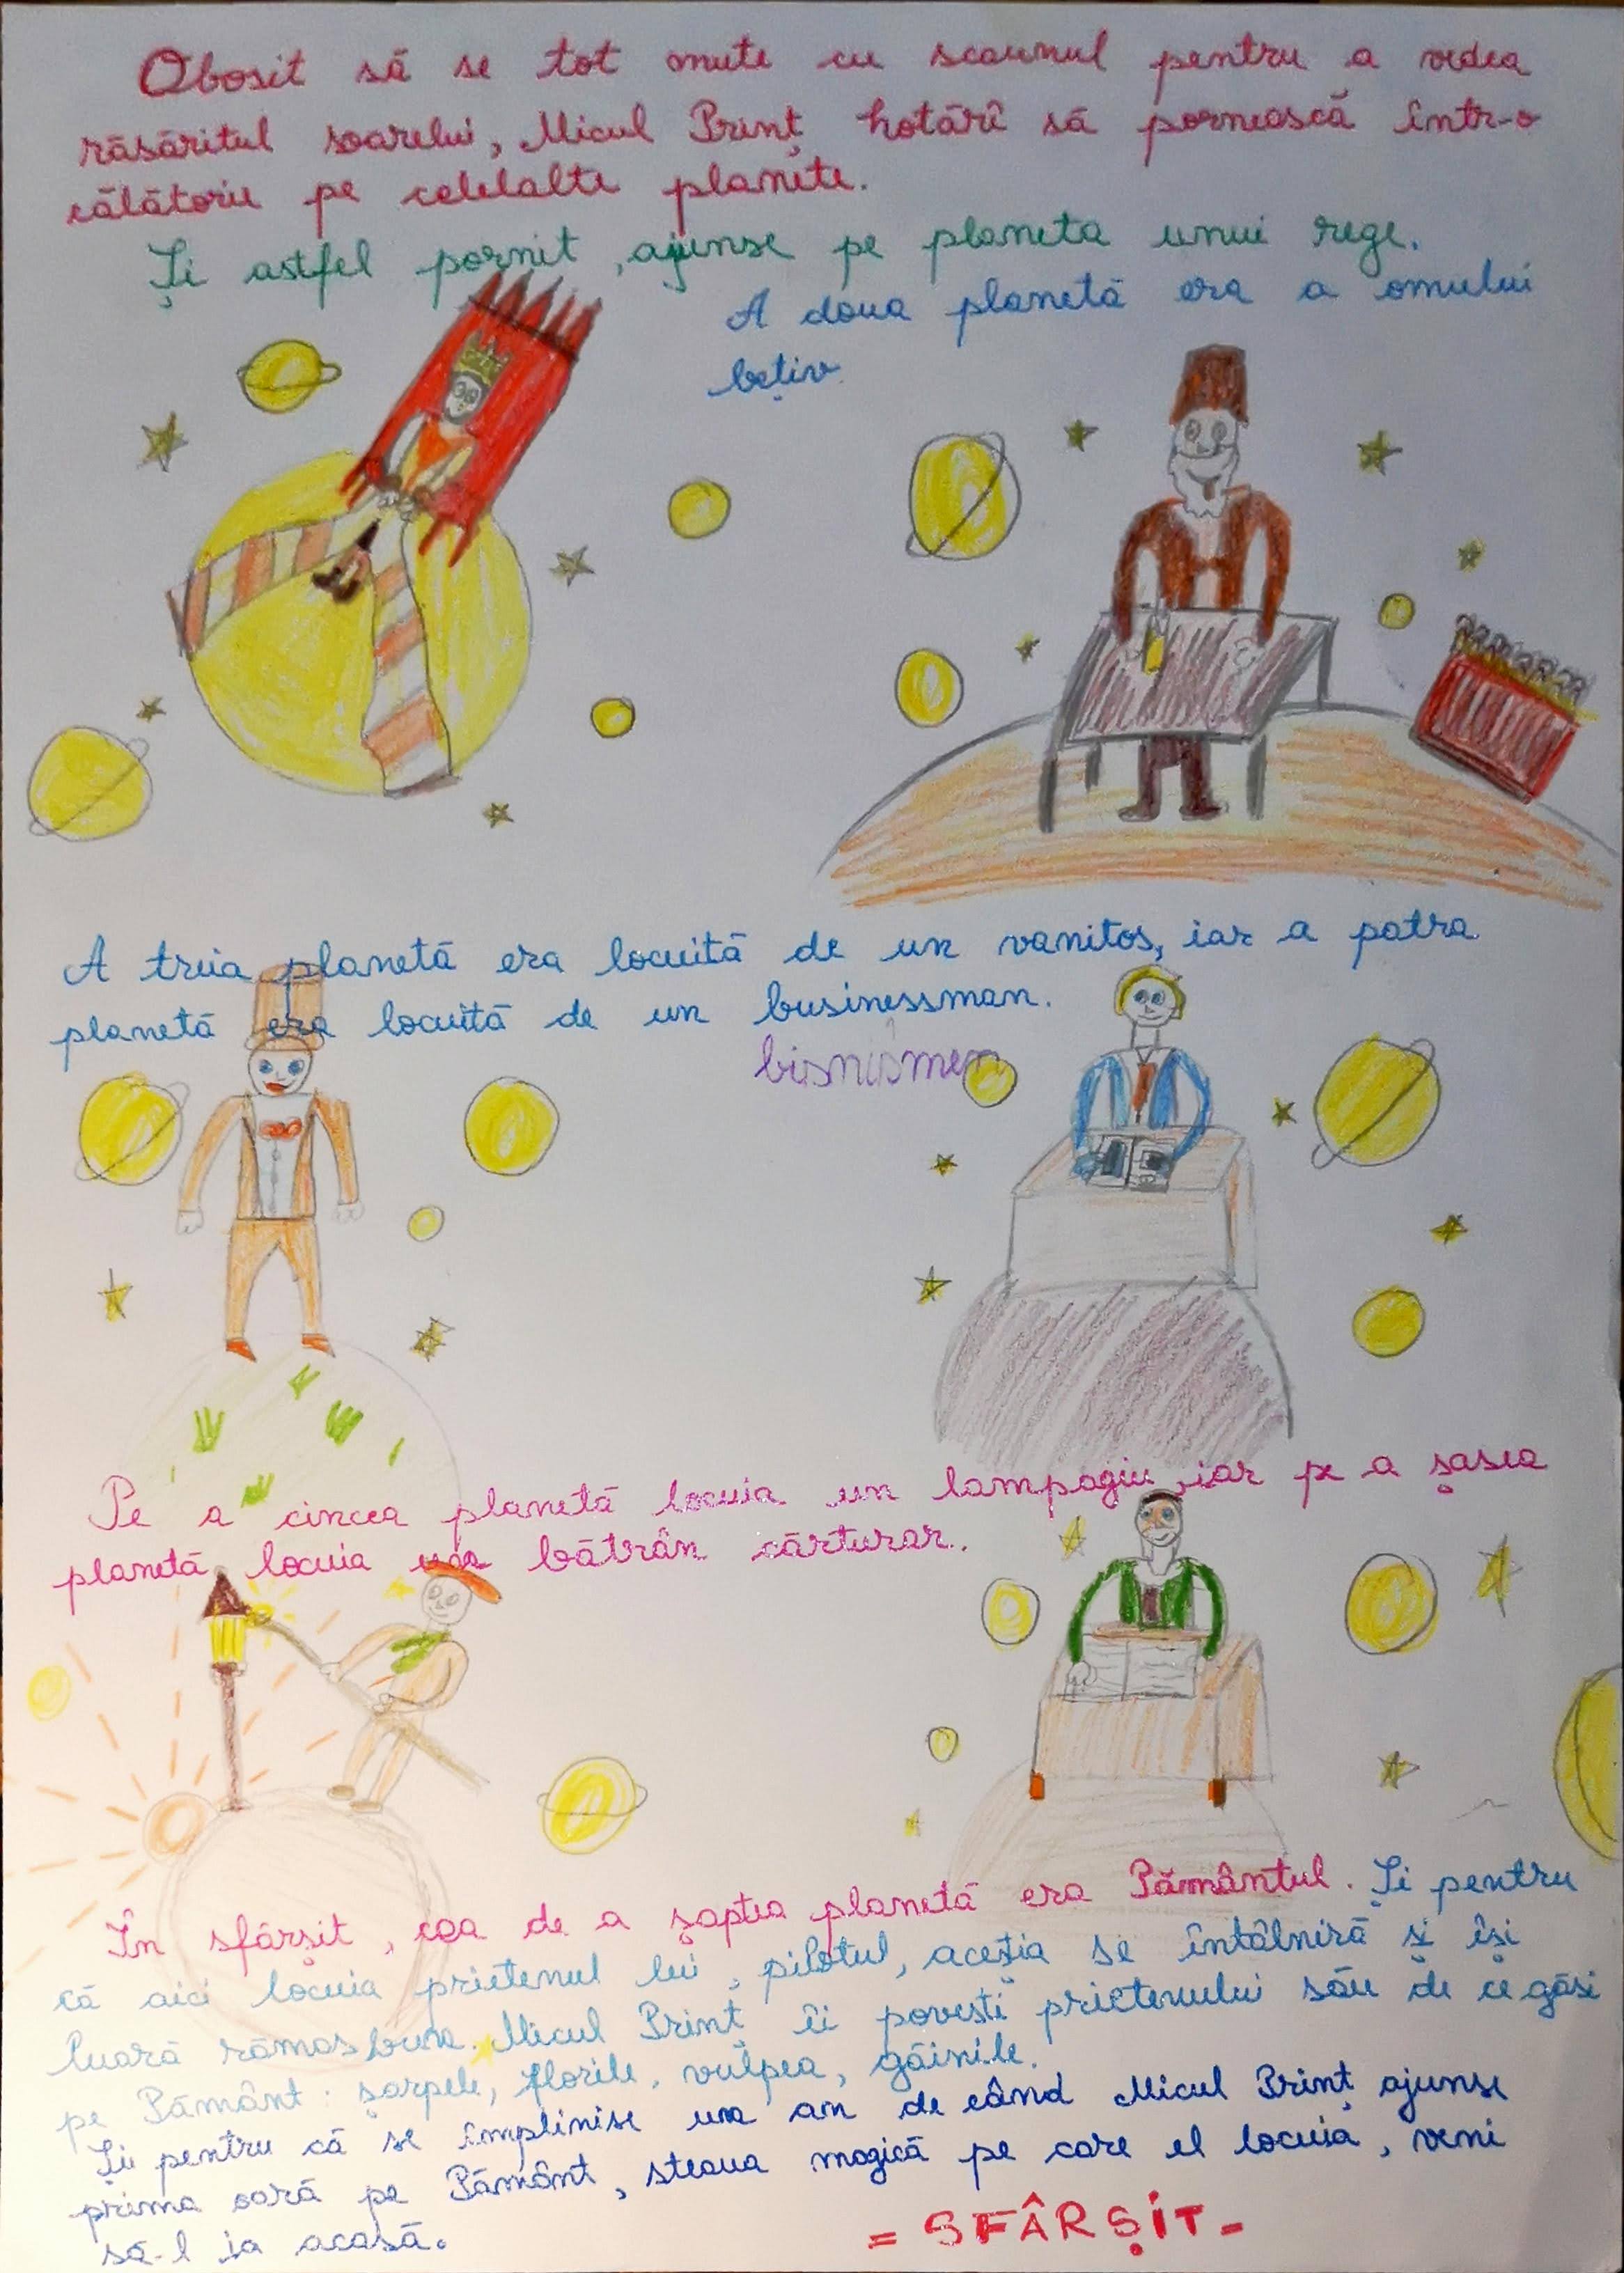 Obosit să se tot mute cu scaunul pentru a vedea
răsăritul soarelui, Micul Prinț hotărî să pornească într-o
călătorie pe celelalte planete.
Și astfel pornit, ajunse pe planeta unui rege.
A doua planetă era a omului
bețiv.
A treia planetă era locuită de un vanitos, iar a patra
planetă era locuită de un businessman.
bisnismen
Pe a cincea planetă locuia un lampagiu, iar pe a șasea
planetă locuia un bătrân cărturar.
În sfârșit, cea de a șaptea planetă era Pământul. Și pentru
că aici locuia prietenul lui, pilotul, aceștia se întâlniră și își
luară rămas bun. Micul Prinț îi povesti prietenului său de ce găsi
pe Pământ: șarpele, florile, vulpea, găinile.
Și pentru că se împlinise un an de când Micul Prinț ajunse
prima oară pe Pământ, steaua magică pe care el locuia, veni
să-l ia acasă.
= SFÂRȘIT =